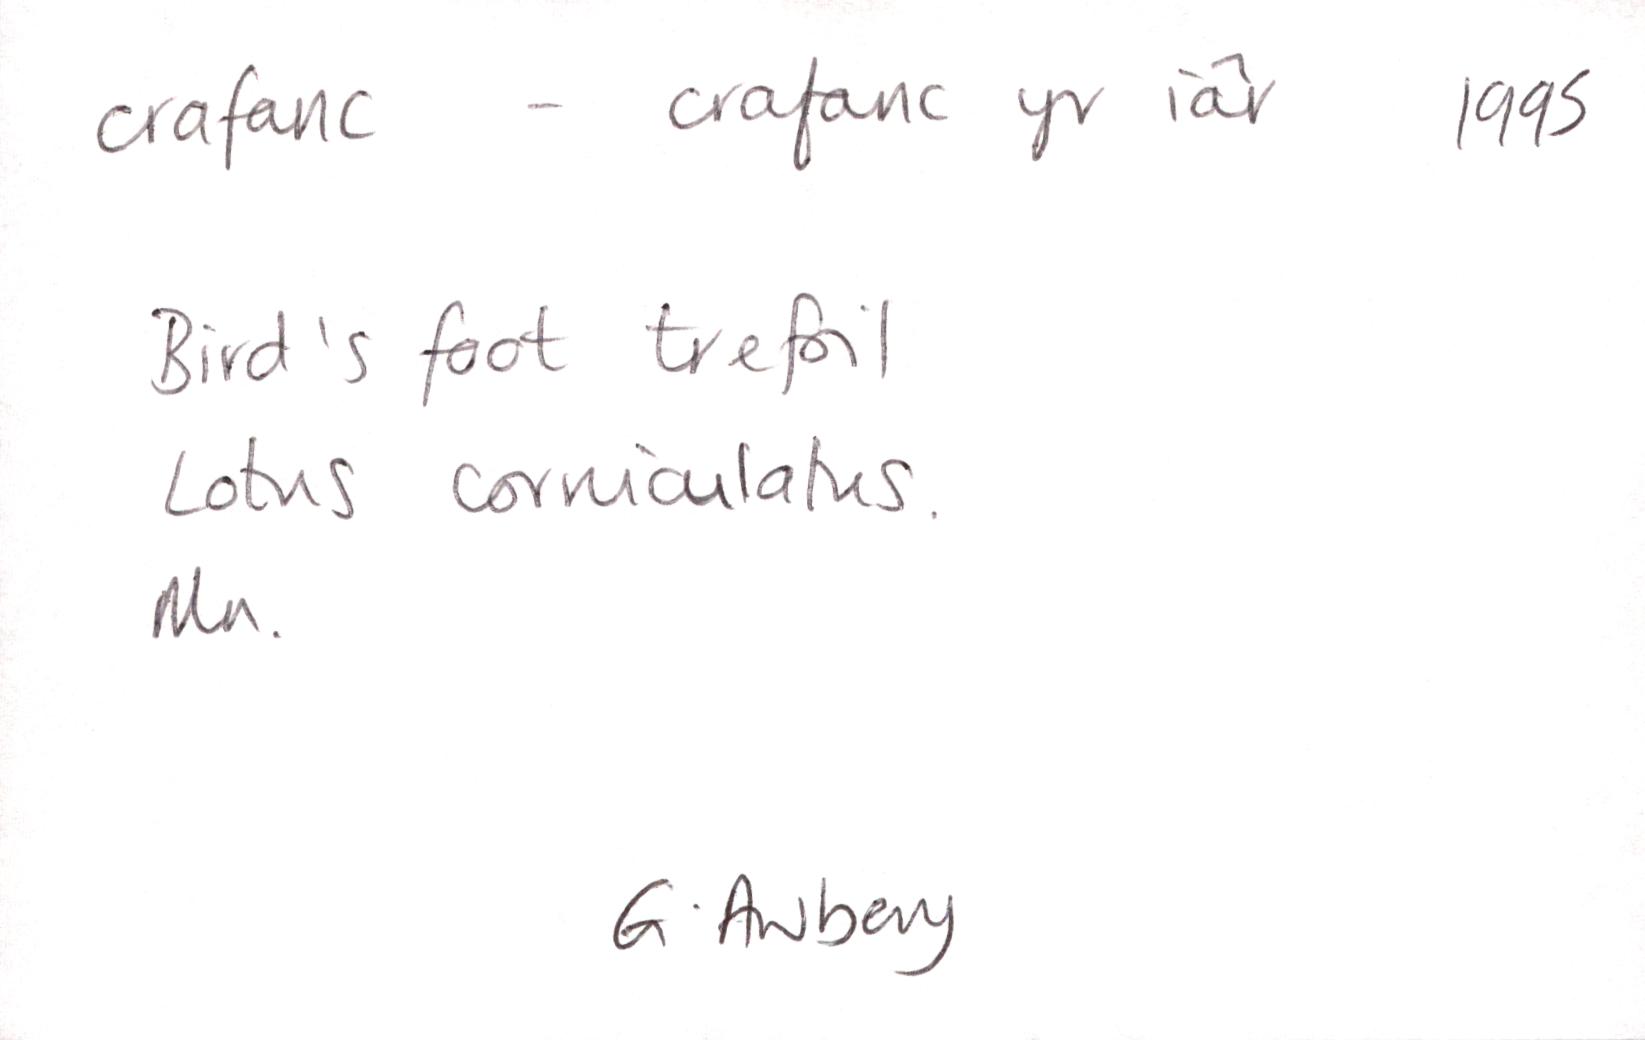 crafanc - crafanc yr iâr 1995
Bird's foot trefoil
Lotus corniculatus.
Mn.
G. Awbery